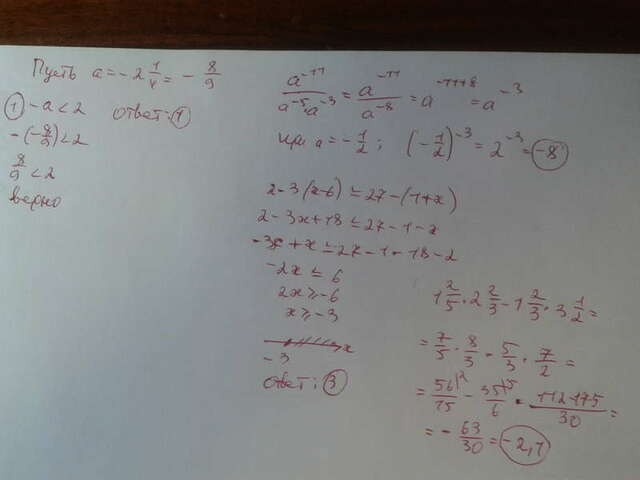 Пусть a = -2 1/4 = - 8/9
① -a < 2 ответ: ①
-(-8/9) < 2
8/9 < 2
верно
a^-11 / a^-5·a^-3 = a^-11 / a^-8 = a^-11+8 = a^-3
при a = -1/2; (-1/2)^-3 = 2^-3 = -8
2-3(x-6) ≤ 27-(1+x)
2-3x+18 ≤ 27-1-x
-3x+x ≤ 27-1-18-2
-2x ≤ 6
2x ≥ -6
x ≥ -3
x
-3
ответ: ③
1 2/5 · 2 2/3 - 1 2/3 · 3 1/2 =
= 7/5 · 8/3 - 5/3 · 7/2 =
= 56/15 - 35/6 = 112-175/30 =
= - 63/30 = -2,1